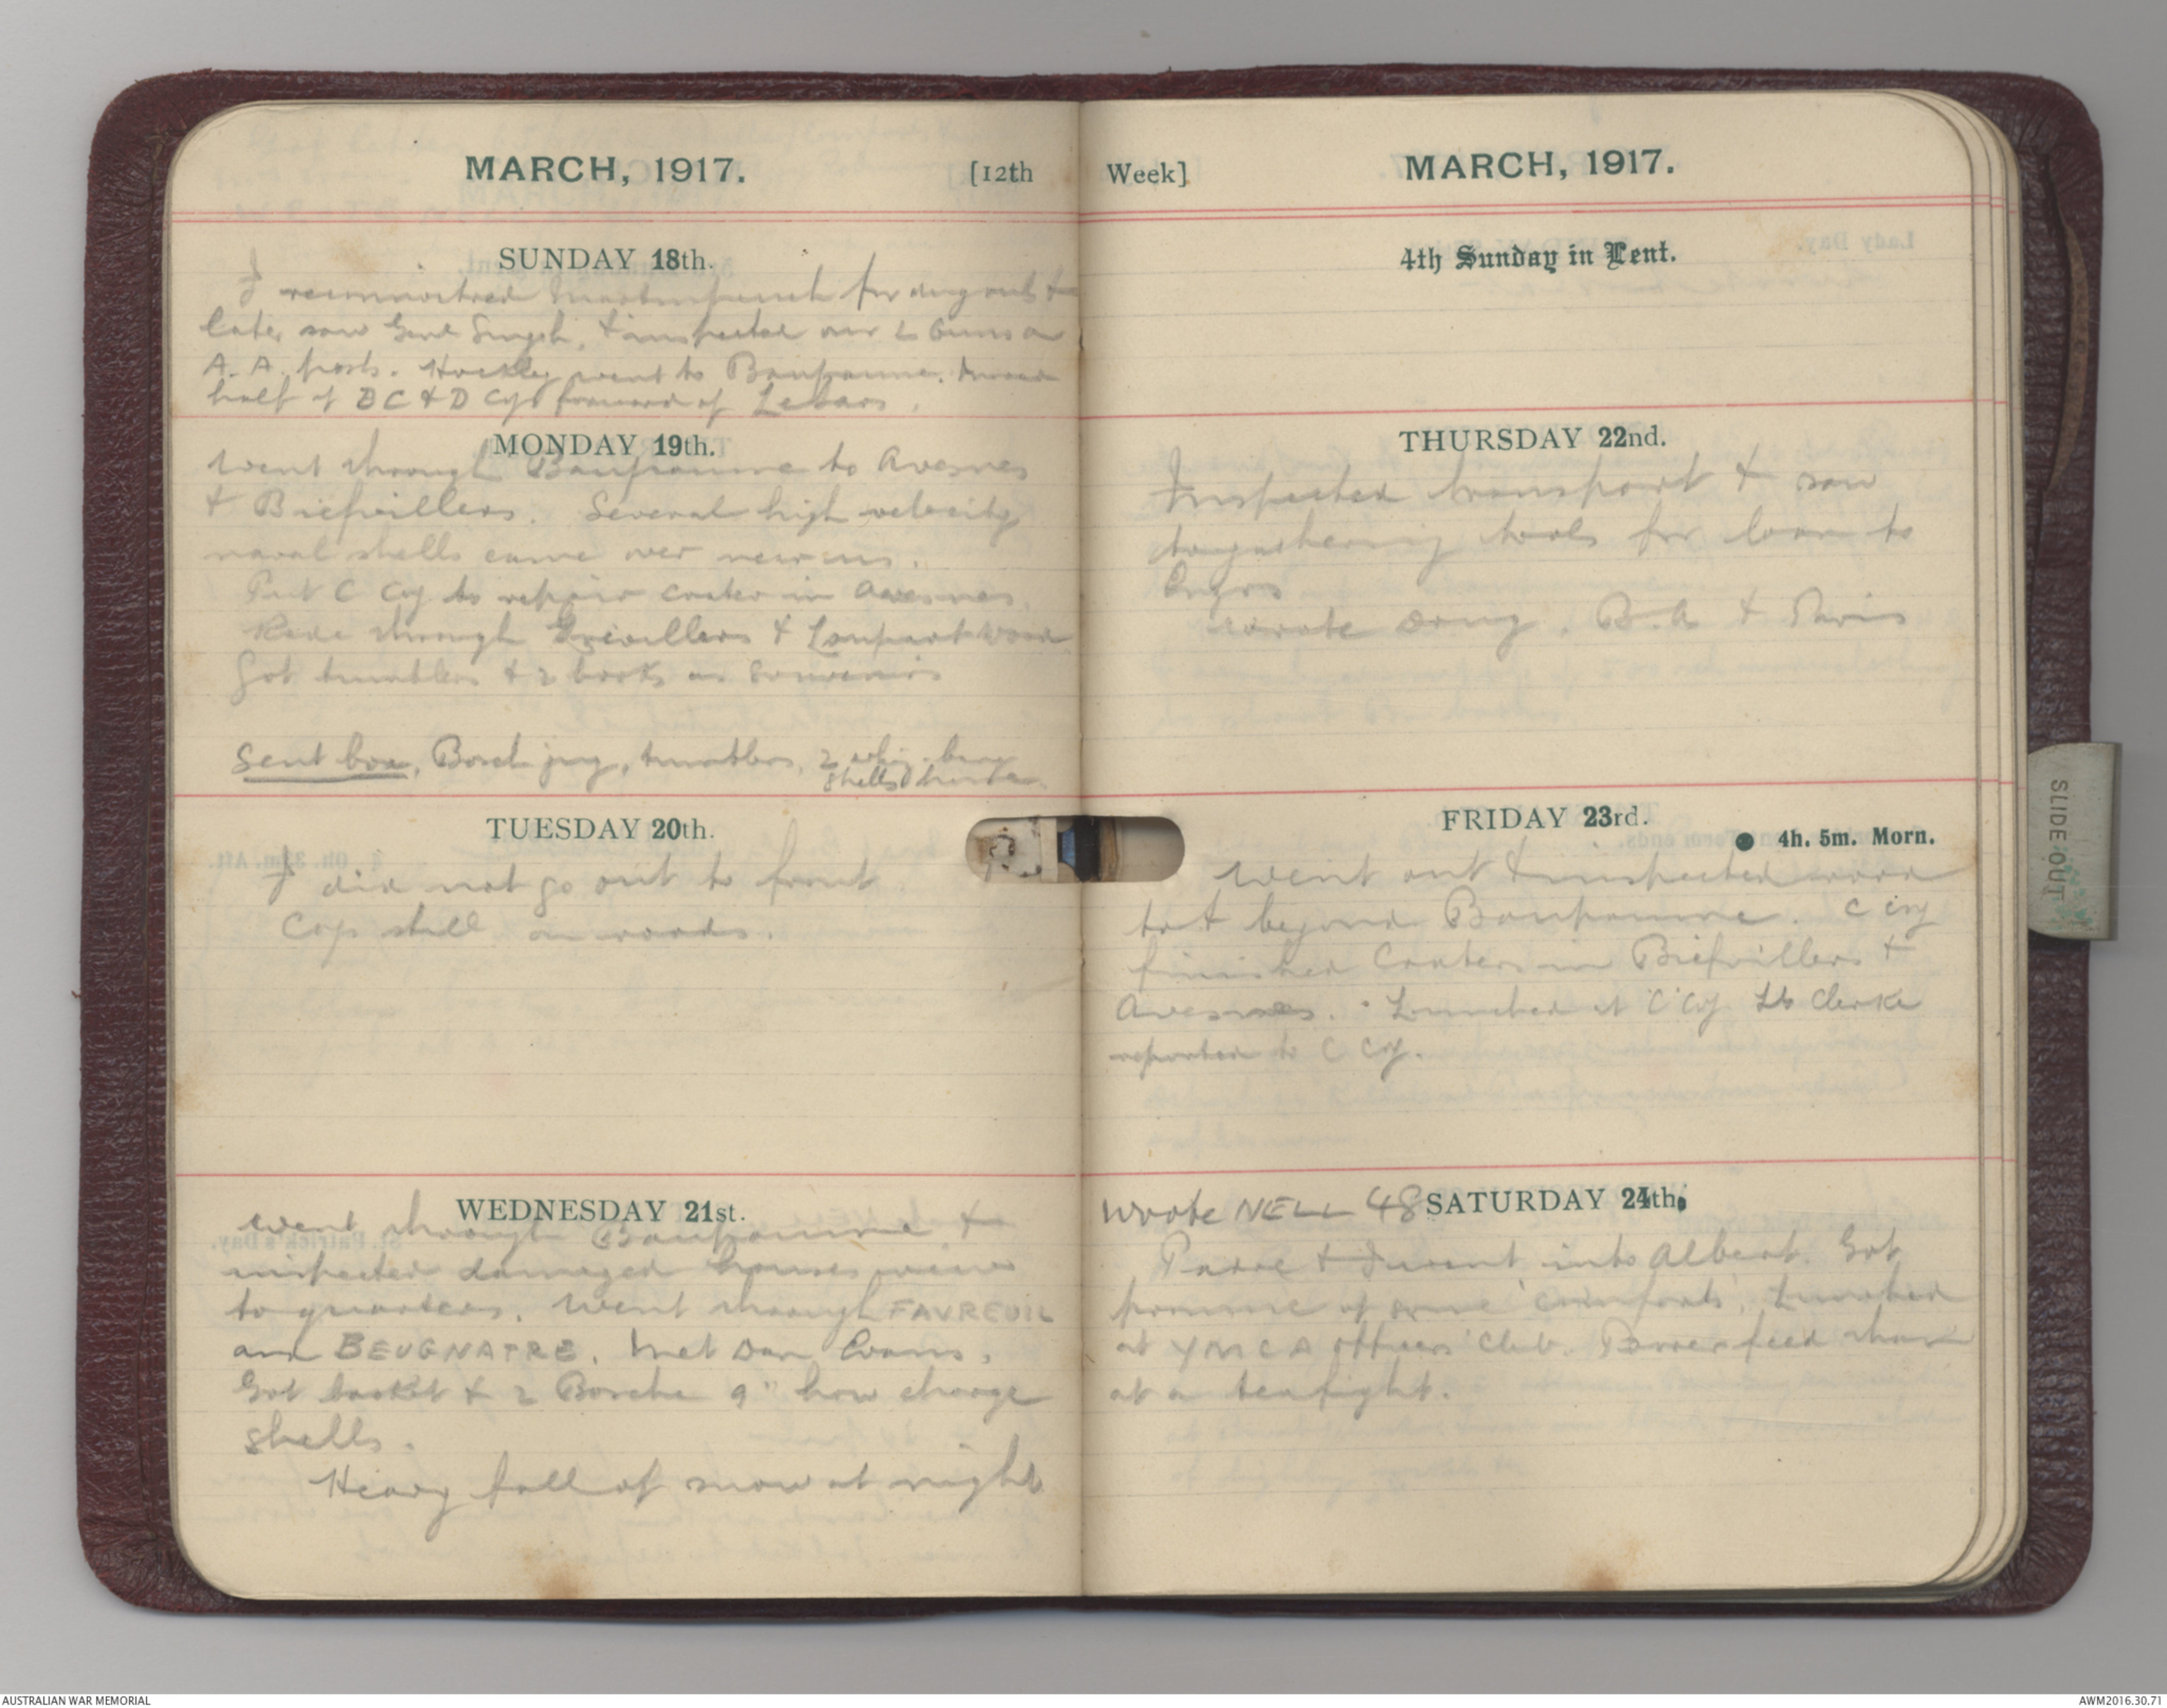 MARCH, 1917.
[12th
SUNDAY 18th.
I reconnoitred Martinpuich for dugouts &
later saw Genl Smyth, & inspected our L Guns on
A. A. posts. went to Bapaume. Moved
half of B C & D Coys forward of Lebars.
MONDAY 19th.
Went through Baupaume to Avesnes
& Biefvillers. Several high velocity
naval shells came over near us.
Put C Coy to repair crater in Avesnes.
Rode through Grevillers & Loupart Wood
Got tumblers & 2 books as souvenirs
Sent box, Bosch jug, tumblers, 2 whiz-bang
shells
TUESDAY 20th.
I did not go out to front.
Coys still on roads.
WEDNESDAY 21st.
Went through Baupaume &
inspected damaged houses view
to quarters. Went through FAVREUIL
and BEUGNATRE. Met Dan Evans.
Got basket & 2 Bosche 9" how charge
shells.
Heavy fall of snow at night
Week]
MARCH, 1917.
4th Sunday in Lent.
THURSDAY 22nd.
Inspected transport & saw
to gathering tools for loan to
Engrs
Wrote Doug, B.A & Paris
FRIDAY 23rd.
● 4h. 5m. Morn.
Went out & inspected road
to & beyond Baupaume. C Coy
finished Craters in Biefvillers &
Avesnes. Lunched at 'C' Coy Lt Clarke
reported to C Coy.
Wrote NELL 48 SATURDAY 24th.
& I went into Albert. Got
promise of some 'comforts'. Lunched
at YMCA Officers' Club. feed than
at a teafight.
SLIDE OUT
AUSTRALIAN WAR MEMORIAL
AWM2016.30.71